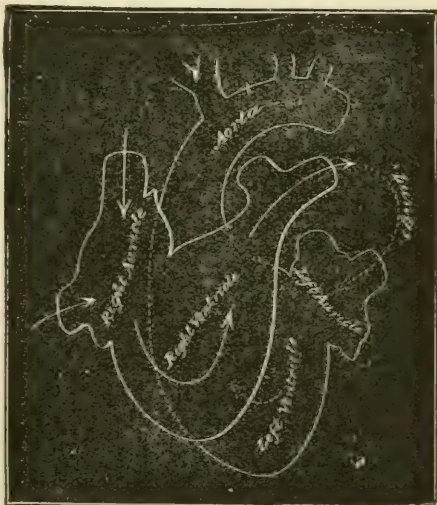 Aorta
Lungs
Right Auricle
Right Ventricle
Left Auricle
Left Ventricle